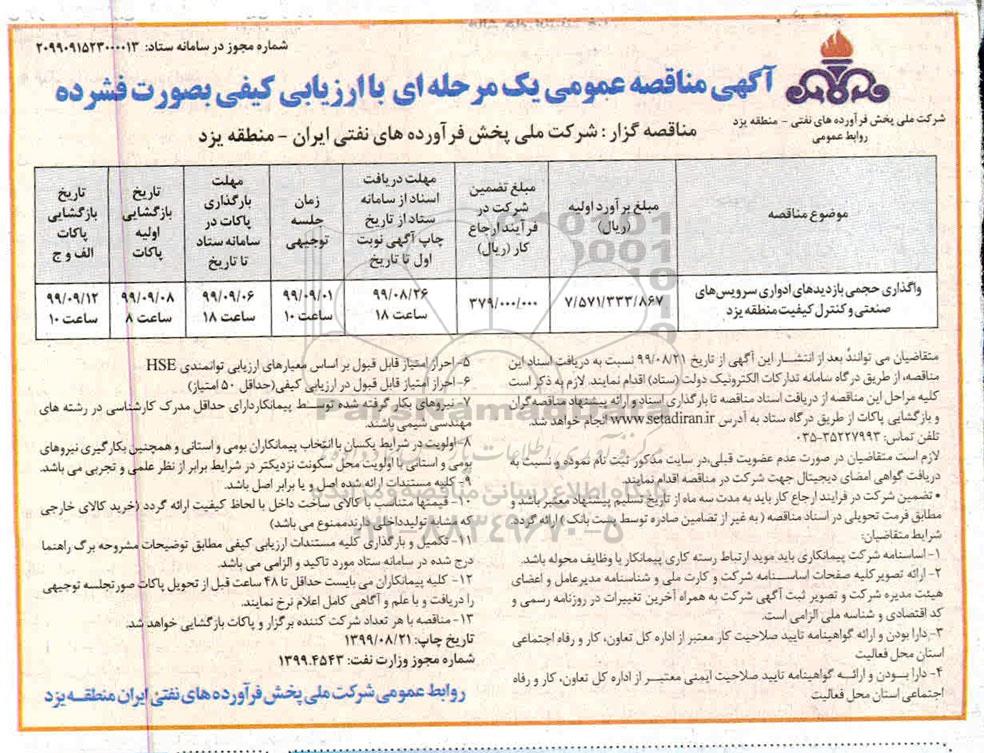 شماره مجوز در سامانه ستاد: ۲۰۹۹۰۹۱۵۲۳۰۰۰۰۱۳
آگهی مناقصه عمومی یک مرحله ای با ارزیابی کیفی بصورت فشرده
شرکت ملی پخش فرآورده های نفتی - منطقه یزد
روابط عمومی
مناقصه گزار: شرکت ملی پخش فرآورده های نفتی ایران - منطقه یزد
موضوع مناقصه
مبلغ برآورد اولیه
(ریال)
مبلغ تضمین
شرکت در
فرآیند ارجاع
کار (ریال)
مهلت دریافت
اسناد از سامانه
ستاد از تاریخ
چاپ آگهی نوبت
اول تا تاریخ
زمان
جلسه
توجیهی
مهلت
بارگذاری
پاکات در
سامانه ستاد
تا تاریخ
تاریخ
بازگشایی
اولیه
پاکات
تاریخ
بازگشایی
پاکات
الف و ج
واگذاری حجمی بازدیدهای ادواری سرویس‌های
صنعتی و کنترل کیفیت منطقه یزد
۷/۵۷۱/۳۳۳/۸۶۷
۳۷۹/۰۰۰/۰۰۰
۹۹/۰۸/۲۶
ساعت ۱۸
۹۹/۰۹/۰۱
ساعت ۱۰
۹۹/۰۹/۰۶
ساعت ۱۸
۹۹/۰۹/۰۸
ساعت ۸
۹۹/۰۹/۱۲
ساعت ۱۰
متقاضیان می توانند بعد از انتشار این آگهی از تاریخ ۹۹/۰۸/۲۱ نسبت به دریافت اسناد این
مناقصه، از طریق درگاه سامانه تدارکات الکترونیک دولت (ستاد) اقدام نمایند. لازم به ذکر است
کلیه مراحل این مناقصه از دریافت اسناد مناقصه تا بارگذاری اسناد و ارائه پیشنهاد مناقصه گران
و بازگشایی پاکات از طریق درگاه ستاد به آدرس www.setadiran.ir انجام خواهد شد.
تلفن تماس: ۳۵۲۲۷۹۹۳-۰۳۵
لازم است متقاضیان در صورت عدم عضویت قبلی،در سایت مذکور ثبت نام نموده و نسبت به
دریافت گواهی امضای دیجیتال جهت شرکت در مناقصه اقدام نمایند.
• تضمین شرکت در فرایند ارجاع کار باید به مدت سه ماه از تاریخ تسلیم پیشنهاد معتبر باشد و
مطابق فرمت تحویلی در اسناد مناقصه ( به غیر از تضامین صادره توسط پست بانک ) ارائه گردد.
شرایط متقاضیان:
۱- اساسنامه شرکت پیمانکاری باید موید ارتباط رسته کاری پیمانکار با وظایف محوله باشد.
۲- ارائه تصویر کلیه صفحات اساسنامه شرکت و کارت ملی و شناسنامه مدیرعامل و اعضای
هیئت مدیره شرکت و تصویر ثبت آگهی شرکت به همراه آخرین تغییرات در روزنامه رسمی و
کد اقتصادی و شناسه ملی الزامی است.
۳- دارا بودن و ارائه گواهینامه تایید صلاحیت کار معتبر از اداره کل تعاون، کار و رفاه اجتماعی
استان محل فعالیت
۴- دارا بودن و ارائه گواهینامه تایید صلاحیت ایمنی معتبر از اداره کل تعاون، کار و رفاه
اجتماعی استان محل فعالیت
۵- احراز امتیاز قابل قبول بر اساس معیارهای ارزیابی توانمندی HSE
۶- احراز امتیاز قابل قبول در ارزیابی کیفی(حداقل ۵۰ امتیاز)
۷- نیروهای بکار گرفته شده توسط پیمانکار دارای حداقل مدرک کارشناسی در رشته های
مهندسی شیمی باشند.
۸- اولویت در شرایط یکسان با انتخاب پیمانکاران بومی و استانی و همچنین بکارگیری نیروهای
بومی و استانی با اولویت محل سکونت نزدیکتر در شرایط برابر از نظر علمی و تجربی می باشد.
۹- کلیه مستندات ارائه شده اصل و یا برابر اصل باشد.
۱۰- قیمتها متناسب با کالای ساخت داخل با لحاظ کیفیت ارائه گردد (خرید کالای خارجی
که مشابه تولید داخلی دارند ممنوع می باشد)
۱۱- تکمیل و بارگذاری کلیه مستندات ارزیابی کیفی مطابق توضیحات مشروحه برگ راهنما
درج شده در سامانه ستاد مورد تاکید و الزامی می باشد.
۱۲- کلیه پیمانکاران می بایست حداقل تا ۴۸ ساعت قبل از تحویل پاکات صورتجلسه توجیهی
را دریافت و با علم و آگاهی کامل اعلام نرخ نمایند.
۱۳- مناقصه با هر تعداد شرکت کننده برگزار و پاکات بازگشایی خواهد شد.
تاریخ چاپ: ۱۳۹۹/۰۸/۲۱
شماره مجوز وزارت نفت: ۱۳۹۹.۴۵۴۳
روابط عمومی شرکت ملی پخش فرآورده های نفتی ایران منطقه یزد
ParsNamadData
پایگاه اطلاع رسانی مناقصه و مزایده
۰۲۱-۸۸۳۴۹۶۷۰-۵